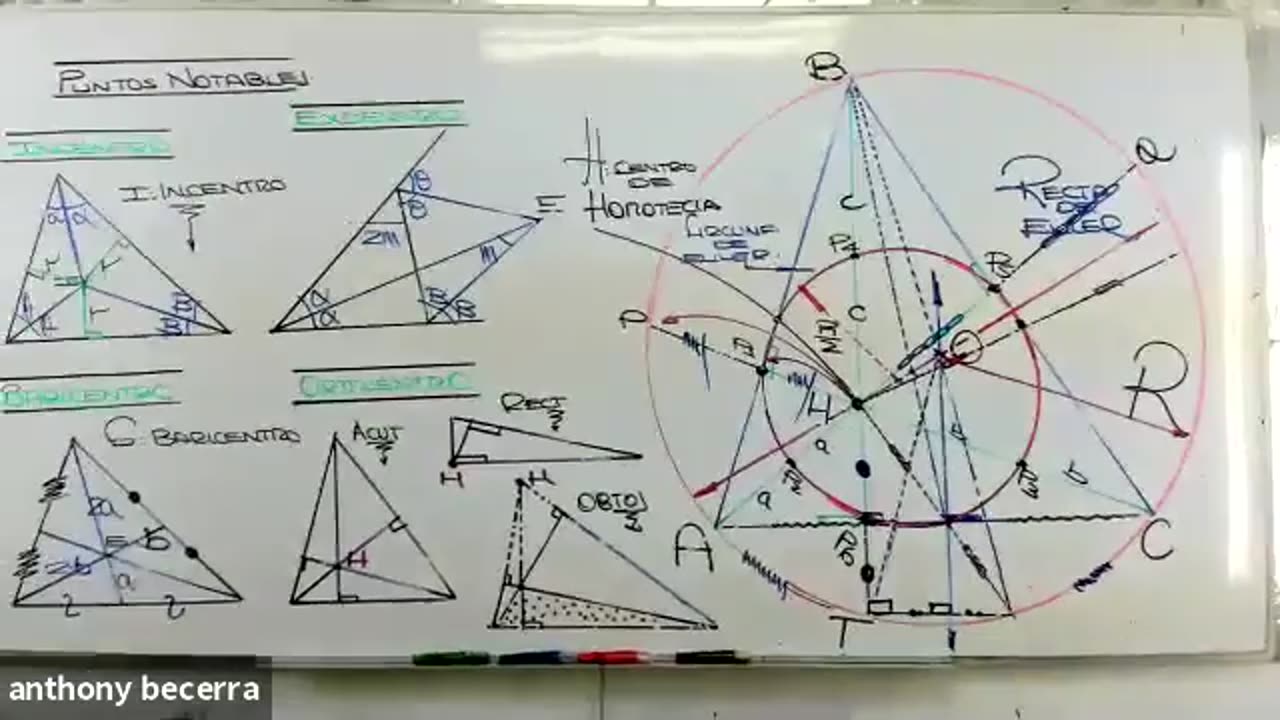 PUNTOS NOTABLES
INCENTRO
EXCENTRO
I: INCENTRO
α α
r r
r
I
B
B
θ
θ
2m
m
E
α
α
B B
BARICENTRO
ORTOCENTRO
G: BARICENTRO
2a
b
2b
a
ACUT
H
RECT
H
H
OBTUS
H: CENTRO
DE
HOMOTECIA
CIRCUNF
DE
EULER
RECTA
DE
EULER
B
Q
c
P4
P5
c
P
R/2
H
R
a
a
b
b
A
C
T
anthony becerra